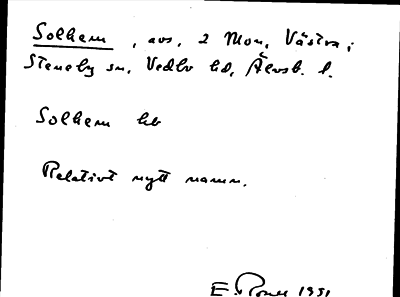 Solhem, avs, 2 Mon, Västra;
Steneby sn, Vedbo hd, Älvsb. l.
Solhem lb
Relativt nytt namn.
E. 1951